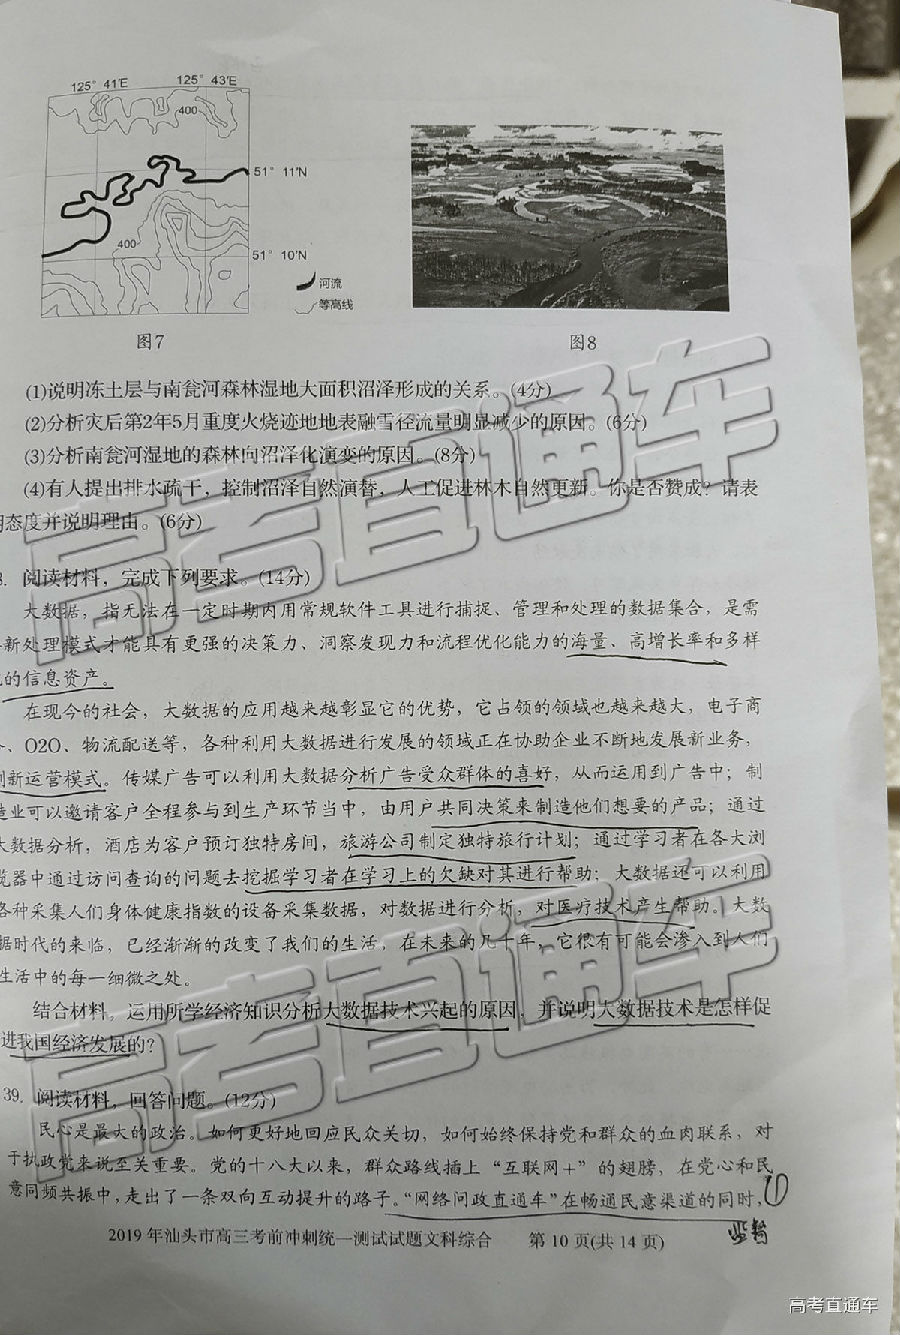 125° 41′E 125° 43′E
400
51° 11′N
400
51° 10′N
河流
等高线
图7 图8
(1)说明冻土层与南瓮河森林湿地大面积沼泽形成的关系。(4分)
(2)分析灾后第2年5月重度火烧迹地地表融雪径流量明显减少的原因。(6分)
(3)分析南瓮河湿地的森林向沼泽化演变的原因。(8分)
(4)有人提出排水疏干，控制沼泽自然演替，人工促进林木自然更新。你是否赞成？请表
明态度并说明理由。(6分)
8. 阅读材料，完成下列要求。(14分)
大数据，指无法在一定时期内用常规软件工具进行捕捉、管理和处理的数据集合，是需
新处理模式才能具有更强的决策力、洞察发现力和流程优化能力的海量、高增长率和多样
的信息资产。
在现今的社会，大数据的应用越来越彰显它的优势，它占领的领域也越来越大，电子商
、O2O、物流配送等，各种利用大数据进行发展的领域正在协助企业不断地发展新业务，
创新运营模式。传媒广告可以利用大数据分析广告受众群体的喜好，从而运用到广告中；制
造业可以邀请客户全程参与到生产环节当中，由用户共同决策来制造他们想要的产品；通过
大数据分析，酒店为客户预订独特房间，旅游公司制定独特旅行计划；通过学习者在各大浏
览器中通过访问查询的问题去挖掘学习者在学习上的欠缺对其进行帮助；大数据还可以利用
各种采集人们身体健康指数的设备采集数据，对数据进行分析，对医疗技术产生帮助。大数
据时代的来临，已经渐渐的改变了我们的生活，在未来的几十年，它很有可能会渗入到人们
生活中的每一细微之处。
结合材料，运用所学经济知识分析大数据技术兴起的原因，并说明大数据技术是怎样促
进我国经济发展的？
39. 阅读材料，回答问题。(12分)
民心是最大的政治。如何更好地回应民众关切，如何始终保持党和群众的血肉联系，对
于执政党来说至关重要。党的十八大以来，群众路线插上“互联网+”的翅膀，在党心和民
意同频共振中，走出了一条双向互动提升的路子。“网络问政直通车”在畅通民意渠道的同时，
①
2019年汕头市高三考前冲刺统一测试试题文科综合 第10页(共14页)
高考直通车
高考直通车
高考直通车